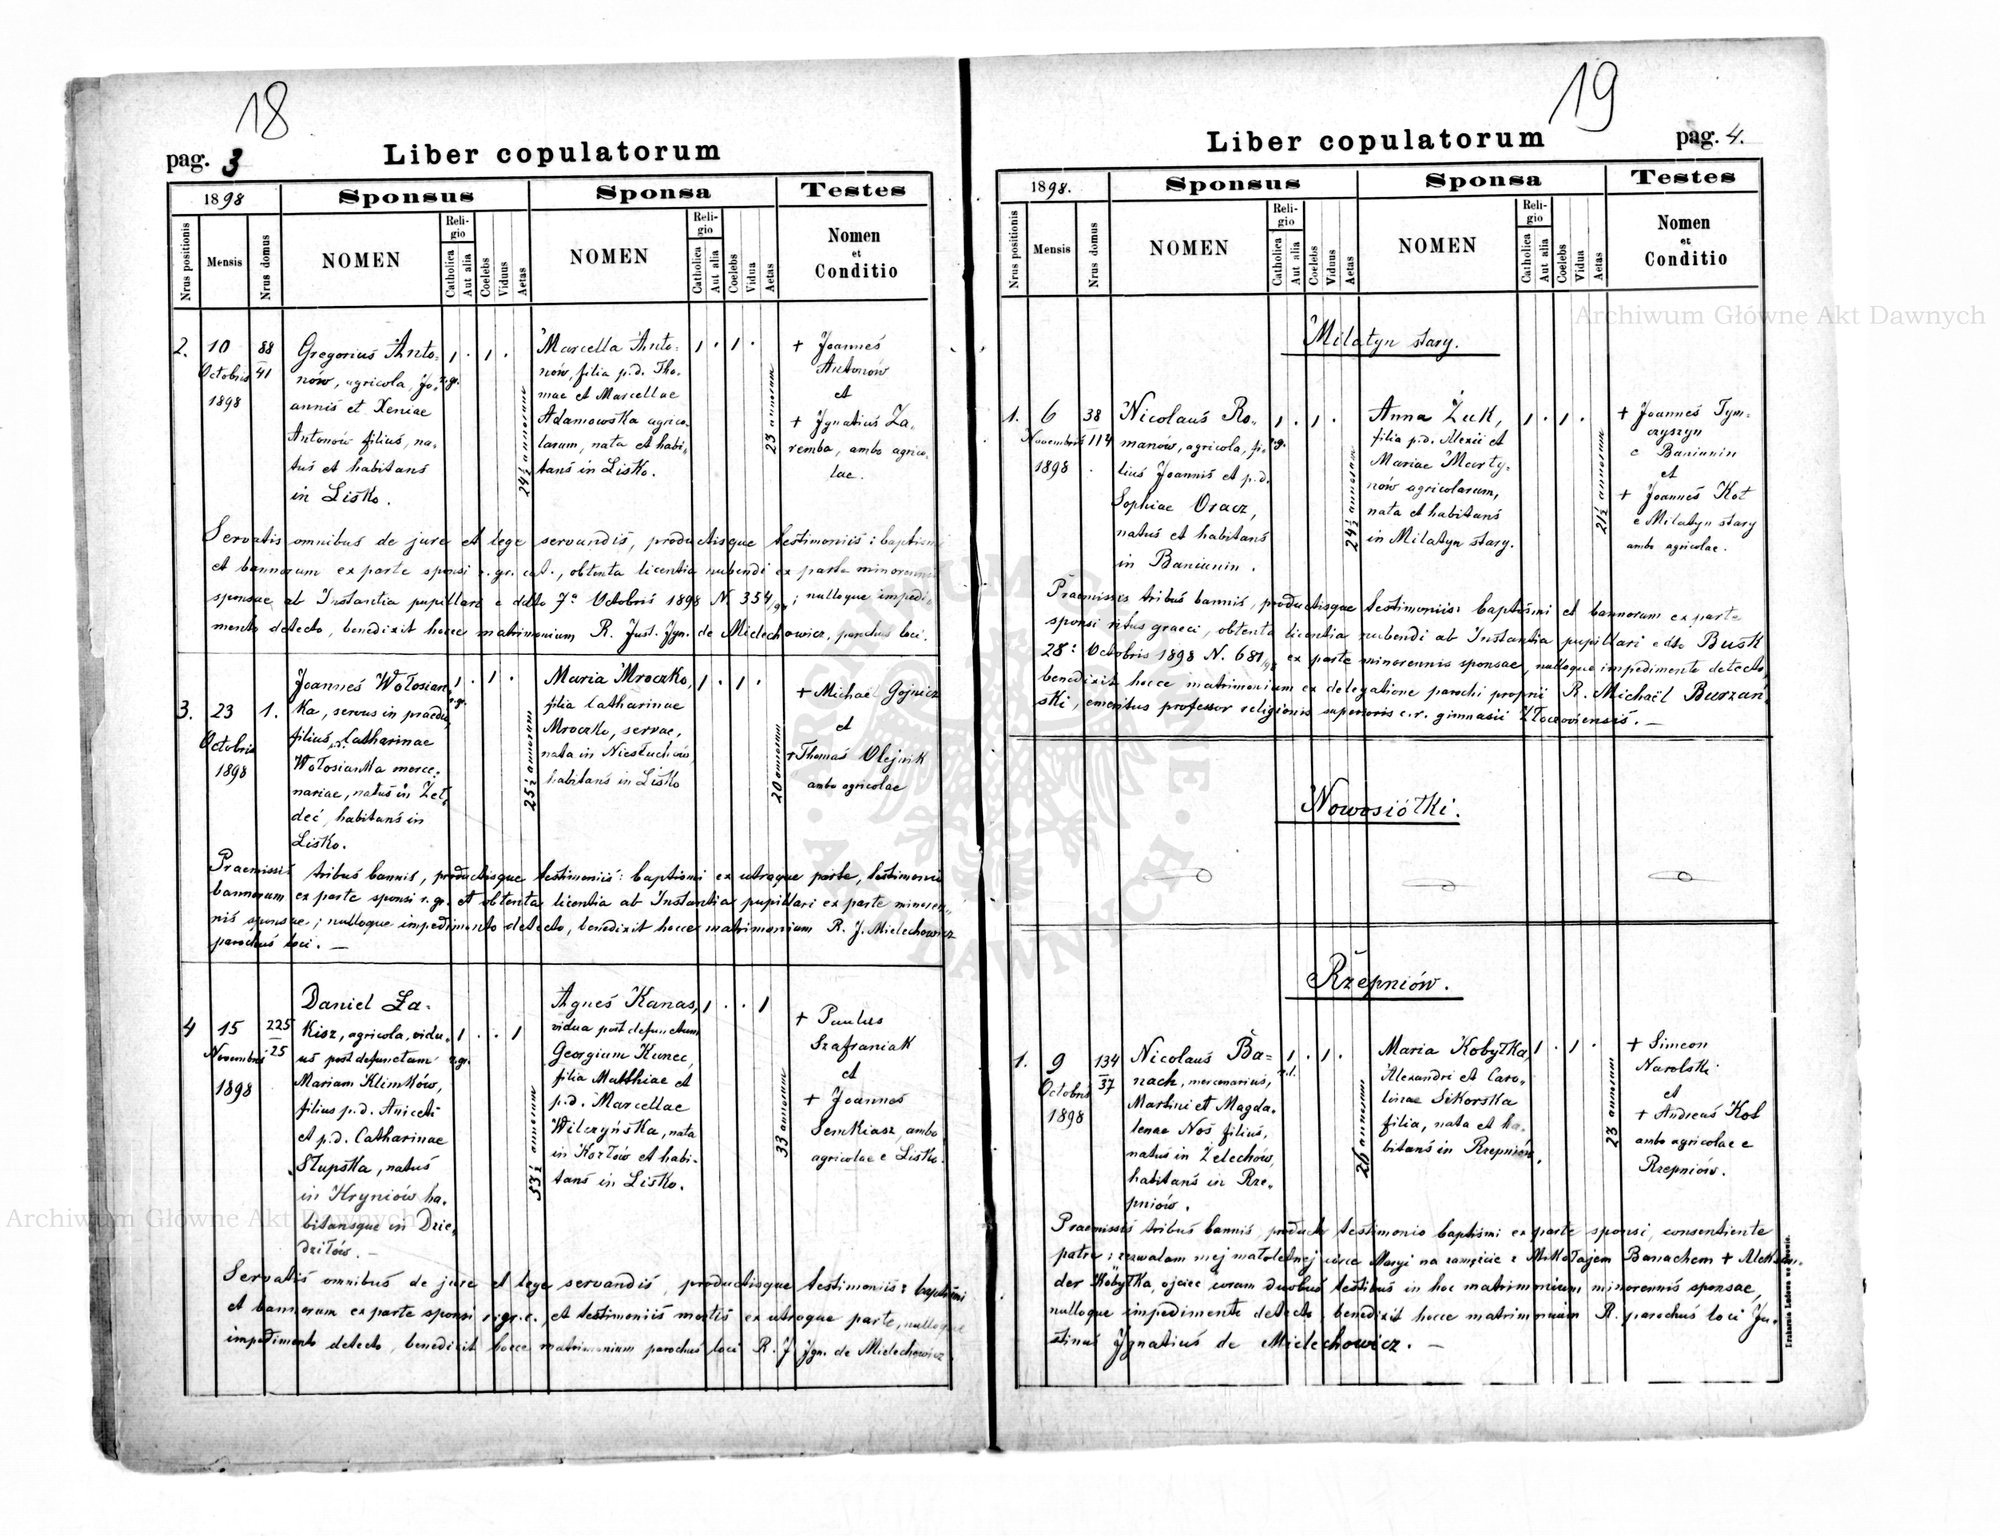 18
pag. 3
Liber copulatorum
1898
Sponsus
Sponsa
Testes
Nrus positionis
Mensis
Nrus domus
NOMEN
Religio
Catholica
Aut alia
Coelebs
Viduus
Aetas
NOMEN
Religio
Catholica
Aut alia
Coelebs
Vidua
Aetas
Nomen
et
Conditio
2. 10 Octobris 1898
88
41
Gregorius Anto-
nów, agricola, Jo-
annis et Xeniae
Antonów filius, na-
tus et habitans
in Lisko.
1 . 1 .
r. gr.
24½ annorum
Marcella Anto-
nów, filia p.d. Tho-
mae et Marcellae
Adamowska agrico-
larum, nata et habi-
tans in Lisko.
1 . 1 .
23 annorum
+ Joannes
Antonów
et
+ Ignatius Za-
remba, ambo agrico-
lae.
Servatis omnibus de jure et lege servandis, productisque testimoniis: baptismi
et bannorum ex parte sponsi r. gr. cat., obtenta licentia nubendi ex parte minorennis
sponsae ab Instantia pupillari e ddto 7a Octobris 1898 N. 354/98; nulloque impedi-
mento detecto, benedixit hocce matrimonium R. Just. Ign. de Mielechowicz, parochus loci.
3. 23 Octobris 1898
1.
Joannes Wołosian-
ka, servus in praedio,
filius p.d. Catharinae
Wołosianka merce-
nariae, natus in Żeł-
deć, habitans in
Lisko.
1 . 1 .
r. gr.
25½ annorum
Maria Mroczko,
filia Catharinae
Mroczko, servae,
nata in Niesłuchów
habitans in Lisko
1 . 1 .
20 annorum
+ Michaël Gojnicz
et
+ Thomas Olejnik
ambo agricolae
Praemissis tribus bannis, productisque testimoniis: baptismi ex utraque parte, testimonio
bannorum ex parte sponsi r. gr. et obtenta licentia ab Instantia pupillari ex parte minoren-
nis sponsae; nulloque impedimento detecto, benedixit hocce matrimonium R. J. Mielechowicz
parochus loci. —
4 15 Novembris 1898
225
25
Daniel Ła-
kisz, agricola, vidu-
us post defunctam
Mariam Klimków,
filius p.d. Aniceti
et p.d. Catharinae
Słupska, natus
in Hryniów ha-
bitansque in Dzie-
dziłów. —
1 . . 1
r. gr.
53½ annorum
Agnes Kanas,
vidua post defunctum
Georgium Kunec,
filia Matthiae et
p.d. Marcellae
Wilczyńska, nata
in Kozłów et habi-
tans in Lisko.
1 . . 1
33 annorum
+ Paulus
Szafraniak
et
+ Joannes
Semkiasz, ambo
agricolae e Lisko.
Servatis omnibus de jure et lege servandis, productisque testimoniis: baptismi
et bannorum ex parte sponsi r. gr. c. et testimoniis mortis ex utraque parte, nulloque
impedimento detecto, benedixit hocce matrimonium parochus loci R. J. Ign. de Mielechowicz.
19
Liber copulatorum
pag. 4.
1898.
Sponsus
Sponsa
Testes
Nrus positionis
Mensis
Nrus domus
NOMEN
Religio
Catholica
Aut alia
Coelebs
Viduus
Aetas
NOMEN
Religio
Catholica
Aut alia
Coelebs
Vidua
Aetas
Nomen
et
Conditio
Milatyn stary.
1. 6 Novembris 1898
38
114
Nicolaus Ro-
manów, agricola, fi-
lius Joannis et p.d.
Sophiae Oracz,
natus et habitans
in Baniunin.
1 . 1 .
r. g.
24½ annorum
Anna Żuk,
filia p.d. Alexii et
Mariae Marty-
nów agricolarum,
nata et habitans
in Milatyn stary.
1 . 1 .
21½ annorum
+ Joannes Tym-
czyszyn
e Baniunin
et
+ Joannes Kot
e Milatyn stary
ambo agricolae.
Praemissis tribus bannis, productisque testimoniis: baptismi et bannorum ex parte
sponsi ritus graeci, obtenta licentia nubendi ab Instantia pupillari e dto Busk
28: Octobris 1898 N. 681/98 ex parte minorennis sponsae, nulloque impedimento detecto,
benedixit hocce matrimonium ex delegatione parochi proprii R. Michaël Burzań-
ski, emeritus professor religionis superioris c. r. gimnasii Złoczoviensis. —
Nowosiółki.
Rzepniów.
1. 9 Octobris 1898
134
37
Nicolaus Ba-
nach, mercenarius,
Martini et Magda-
lenae Nos filius,
natus in Żelechów,
habitans in Rze-
pniów.
1 . 1 .
r. l.
26 annorum
Maria Kobyłka,
Alexandri et Caro-
linae Sikorska
filia, nata et ha-
bitans in Rzepniów.
1 . 1 .
23 annorum
+ Simeon
Narolski
et
+ Andreas Kot
ambo agricolae e
Rzepniów.
Praemissis tribus bannis, producto testimonio baptismi ex parte sponsi, consentiente
patre: zezwalam mej małoletniej córce Maryi na zamęście z Mikołajem Banachem + Aleksan-
der Kobyłka, ojciec coram duobus testibus in hoc matrimonium minorennis sponsae,
nulloque impedimento detecto, benedixit hocce matrimonium R. parochus loci Ju-
stinus Ignatius de Mielechowicz. —
Drukarnia Ludowa we Lwowie.
Archiwum Główne Akt Dawnych
Archiwum Główne Akt Dawnych
ARCHIWUM GŁÓWNE AKT DAWNYCH